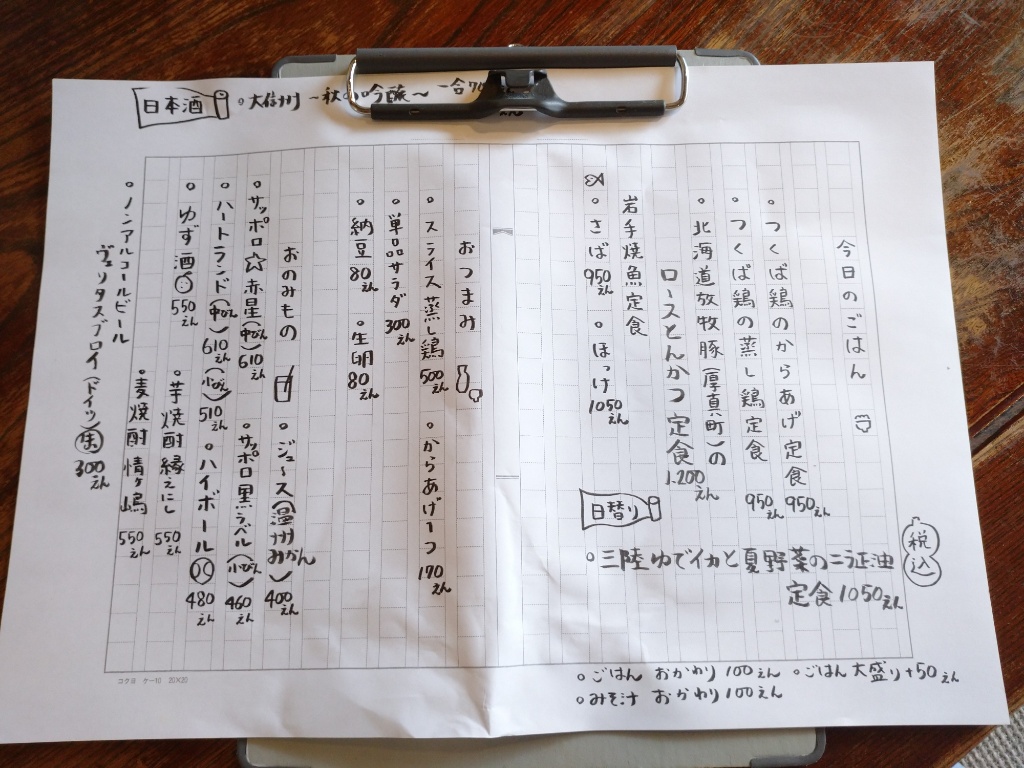 日本酒
。大信州 ～秋の吟醸～ 一合
えん
今日のごはん
。つくば鶏のからあげ定食 950えん
。つくば鶏の蒸し鶏定食 950えん
。北海道放牧豚(厚真町)の
ロースとんかつ定食 1.200えん
岩手焼魚定食
。さば 950えん 。ほっけ 1050えん
日替り
。三陸ゆでイカと夏野菜のニラ正油
定食 1050えん
税込
おつまみ
。スライス蒸し鶏 500えん 。からあげ一つ 170えん
。単品サラダ 300えん
。納豆 80えん 。生卵 80えん
おのみもの 。ジュース(温州みかん) 400えん
。サッポロ☆赤星(中びん) 610えん 。サッポロ黒ラベル(小びん) 460えん
。ハートランド(中びん) 610えん (小びん) 510えん 。ハイボール 480えん
。ゆず酒 550えん 。芋焼酎 縁えにし 550えん
。麦焼酎 情ヶ嶋 550えん
。ノンアルコールビール
ヴェリタスブロイ(ドイツ) 300えん
。ごはん おかわり 100えん 。ごはん大盛り+50えん
。みそ汁 おかわり 100えん
コクヨ ケー10 20×20